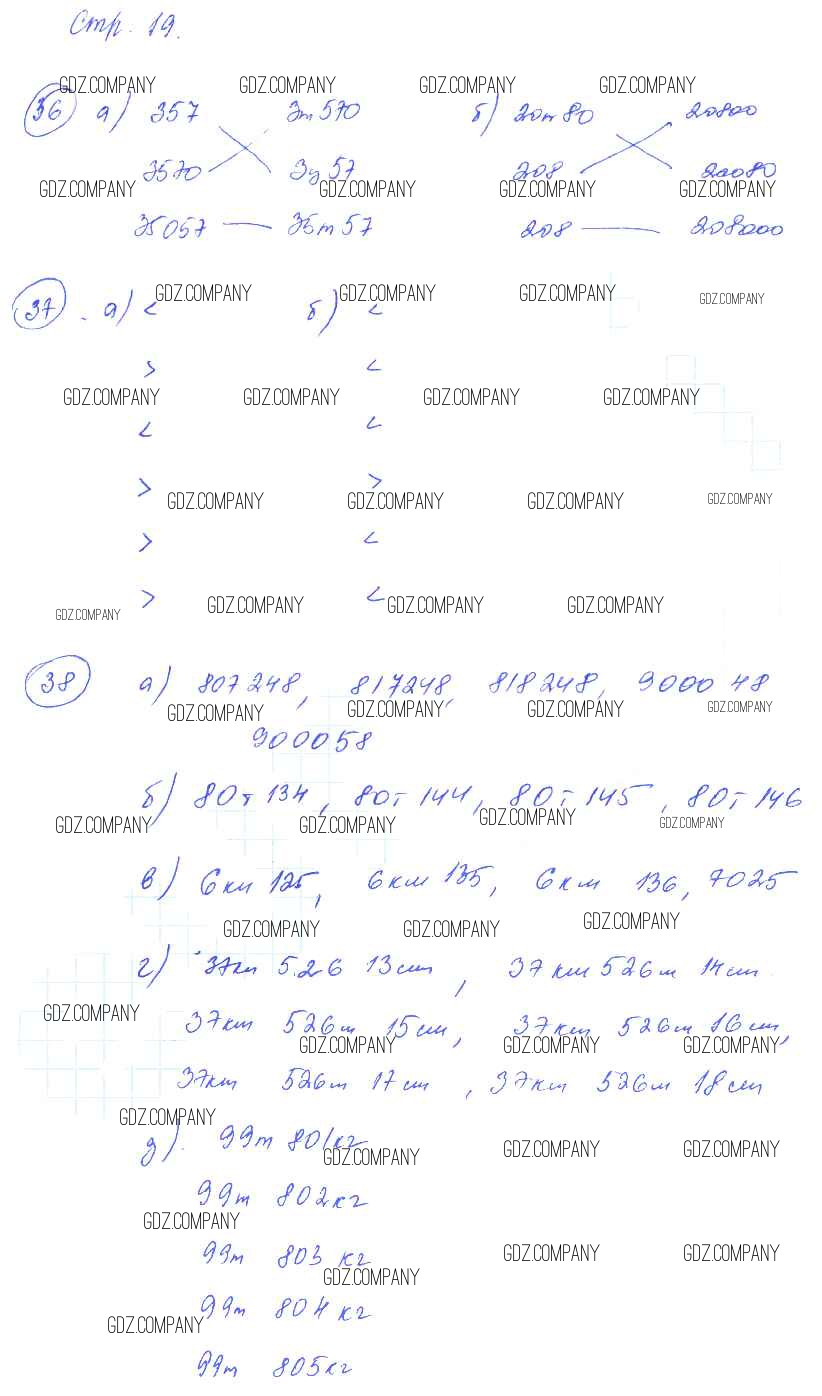 Стр. 19.
GDZ.COMPANY GDZ.COMPANY GDZ.COMPANY GDZ.COMPANY
36 а) 357 3т 570 б) 20т 80 20800
3570 3ц 57 208 20080
GDZ.COMPANY GDZ.COMPANY GDZ.COMPANY GDZ.COMPANY
35057 35т 57 208 208000
GDZ.COMPANY GDZ.COMPANY GDZ.COMPANY GDZ.COMPANY
37. а) < б) <
> <
GDZ.COMPANY GDZ.COMPANY GDZ.COMPANY GDZ.COMPANY
< <
> >
GDZ.COMPANY GDZ.COMPANY GDZ.COMPANY GDZ.COMPANY
> <
> <
GDZ.COMPANY GDZ.COMPANY GDZ.COMPANY GDZ.COMPANY
38 а) 807248, 817248, 818248, 900048
GDZ.COMPANY GDZ.COMPANY GDZ.COMPANY GDZ.COMPANY
900058
б) 80т 134, 80т 144, 80т 145, 80т 146
GDZ.COMPANY GDZ.COMPANY GDZ.COMPANY GDZ.COMPANY
в) 6км 125, 6км 135, 6км 136, 7025
GDZ.COMPANY GDZ.COMPANY GDZ.COMPANY
г) 37км 526 13см, 37км 526м 14см
GDZ.COMPANY
37км 526м 15см, 37км 526м 16см,
GDZ.COMPANY GDZ.COMPANY GDZ.COMPANY
37км 526м 17см, 37км 526м 18см
GDZ.COMPANY
д). 99т 801кг
GDZ.COMPANY GDZ.COMPANY GDZ.COMPANY
99т 802кг
GDZ.COMPANY
99т 803 кг
GDZ.COMPANY GDZ.COMPANY GDZ.COMPANY
99т 804 кг
GDZ.COMPANY
99т 805кг